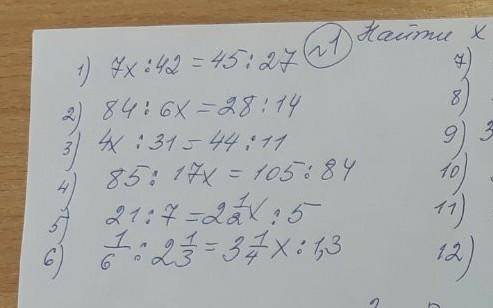 №1 Найти x
1) 7x : 42 = 45 : 27
2) 84 : 6x = 28 : 14
3) 4x : 31 = 44 : 11
4) 85 : 17x = 105 : 84
5) 21 : 7 = 2 1/2 x : 5
6) 1/6 : 2 1/3 = 3 1/4 x : 1,3
7)
8)
9) 3
10)
11)
12)